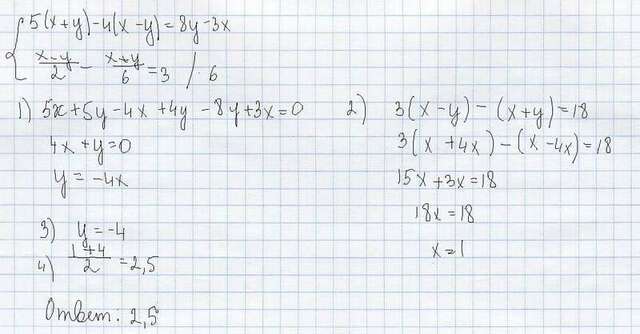 5(x+y)-4(x-y)=8y-3x
x-y/2 - x+y/6 = 3 /·6
1) 5x+5y-4x+4y-8y+3x=0
4x+y=0
y=-4x
2) 3(x-y)-(x+y)=18
3(x+4x)-(x-4x)=18
15x+3x=18
18x=18
x=1
3) y=-4
4) 1+4/2=2,5
Ответ: 2,5